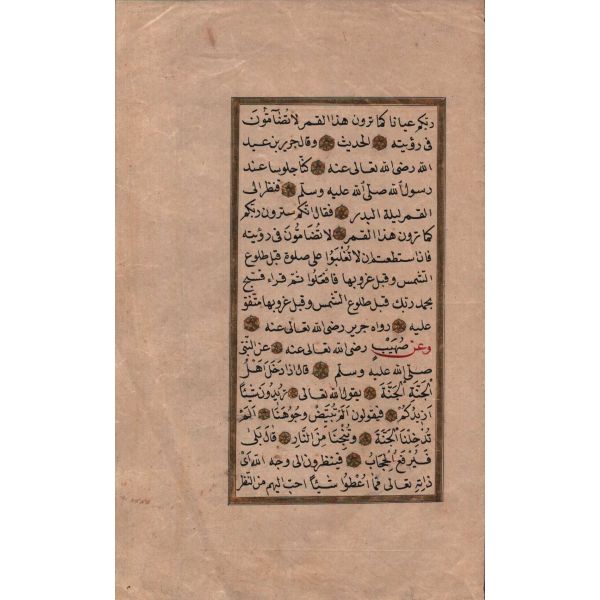 ربكم عيانا كما ترون هذا القمر لا تضامون
فى رؤيته الحديث وقال جرير بن عبد
الله رضى الله تعالى عنه كنا جلوسا عند
رسول الله صلى الله عليه وسلم فنظر الى
القمر ليلة البدر فقال انكم سترون ربكم
كما ترون هذا القمر لا تضامون فى رؤيته
فان استطعتم ان لا تغلبوا على صلوة قبل طلوع
الشمس وقبل غروبها فافعلوا ثم قراء فسبح
بحمد ربك قبل طلوع الشمس وقبل غروبها متفق
عليه رواه جرير رضى الله تعالى عنه
وعن صهيب رضى الله تعالى عنه عن النبى
صلى الله عليه وسلم قال اذا دخل اهل
الجنة الجنة يقول الله تعالى تريدون شيئا
ازيدكم فيقولون الم تبيض وجوهنا الم
تدخلنا الجنة وتنجنا من النار قال بلى
فيرفع الحجاب فينظرون الى وجه الله اى
ذاته تعالى فما اعطوا شيئا احب اليهم من النظر